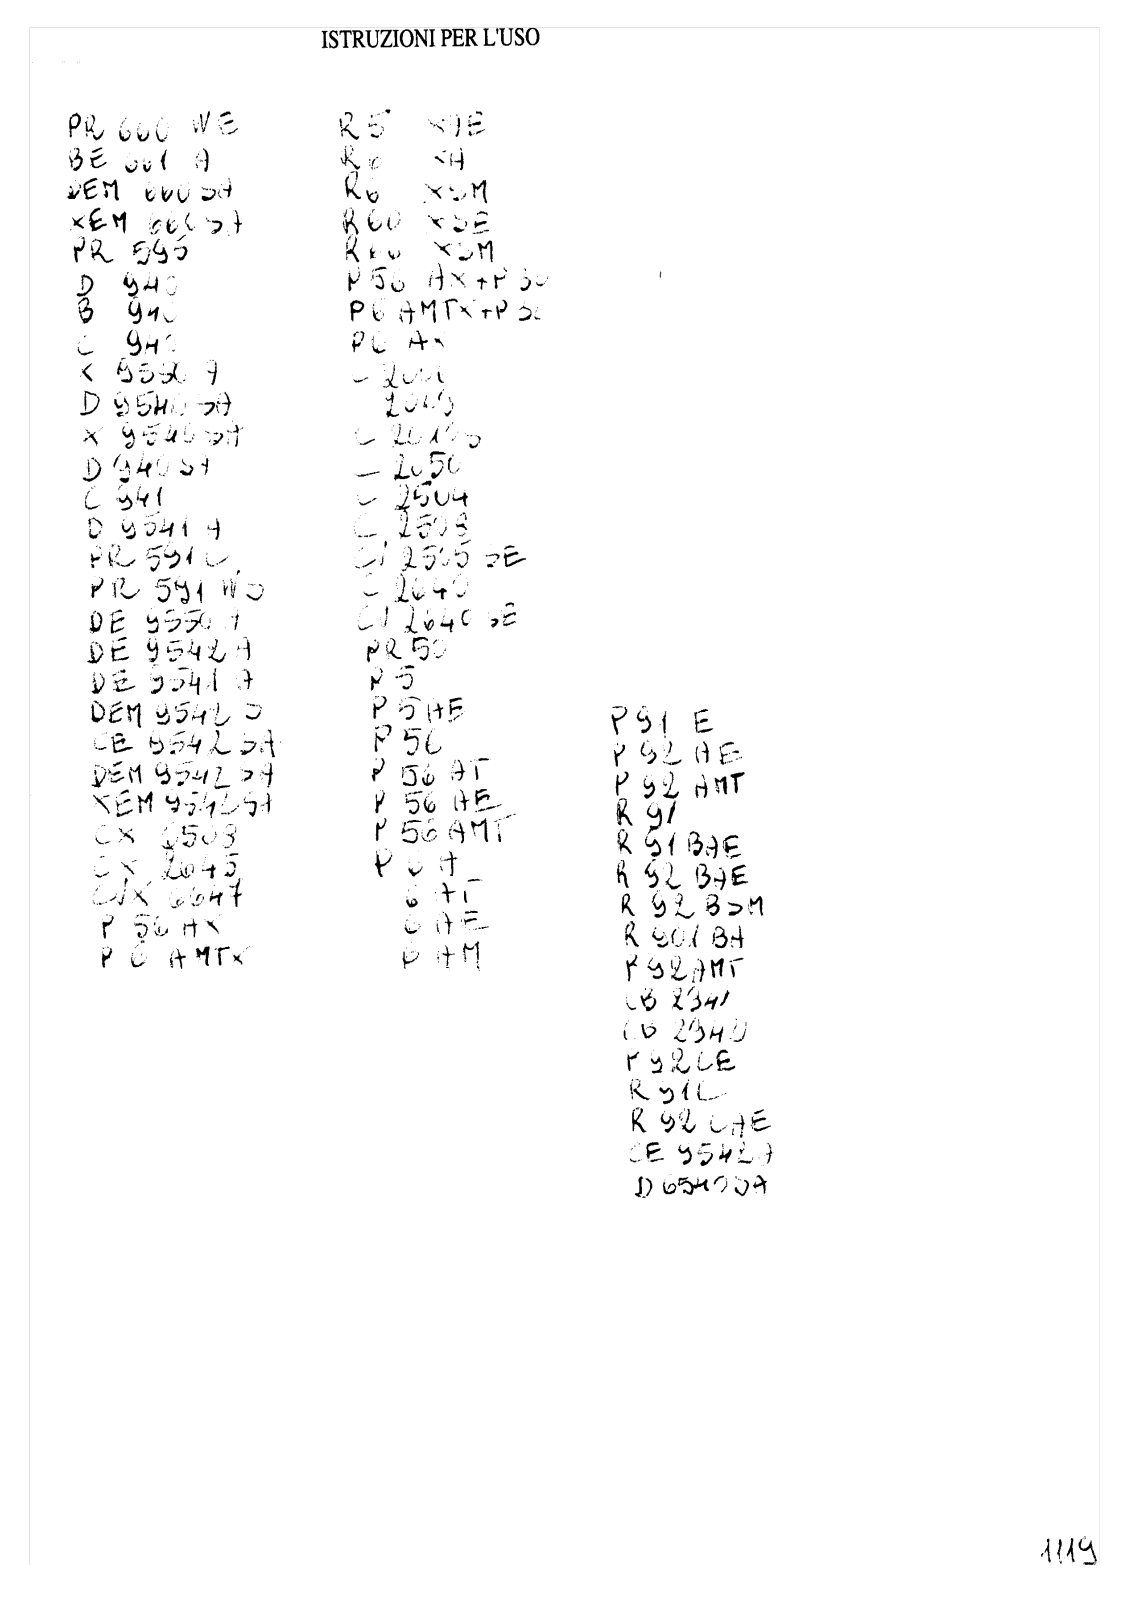 ISTRUZIONI PER L'USO
PR 660 WE
BE 661 A
DEM 660 SA
XEM 660 SA
PR 595
D 940
B 940
C 940
X 9550 A
D 9540 SA
X 9540 SA
D 940 SA
C 941
D 9541 A
PR 591 C
PR 591 WS
DE 9550 A
DE 9542 A
DE 9541 A
DEM 9542 S
CE 9542 SA
DEM 9542 SA
XEM 9542 SA
CX 6503
CX 2645
CVX 6647
P 56 AX
P 6 AMTX
R 5 XAE
R 6 XA
R 6 XSM
R 60 XSE
R 60 XSM
P 56 AX+P 50
P 6 AMTX+P 50
P 6 AX
2049
C 2050
C 2504
C 2503
CV 2505 SE
C 2640
CV 2640 SE
PR 50
P 5
P 5 AE
P 56
P 56 AT
P 56 AE
P 56 AMT
P 6 A
6 AT
6 AE
6 AM
P 91 E
P 92 AE
P 92 AMT
R 91
R 91 BAE
R 92 BAE
R 92 BSM
R 901 BA
P 92 AMT
CB 2941
CB 2940
P 92 CE
R 91 C
R 92 CAE
CE 9542 A
D 6540 SA
1119